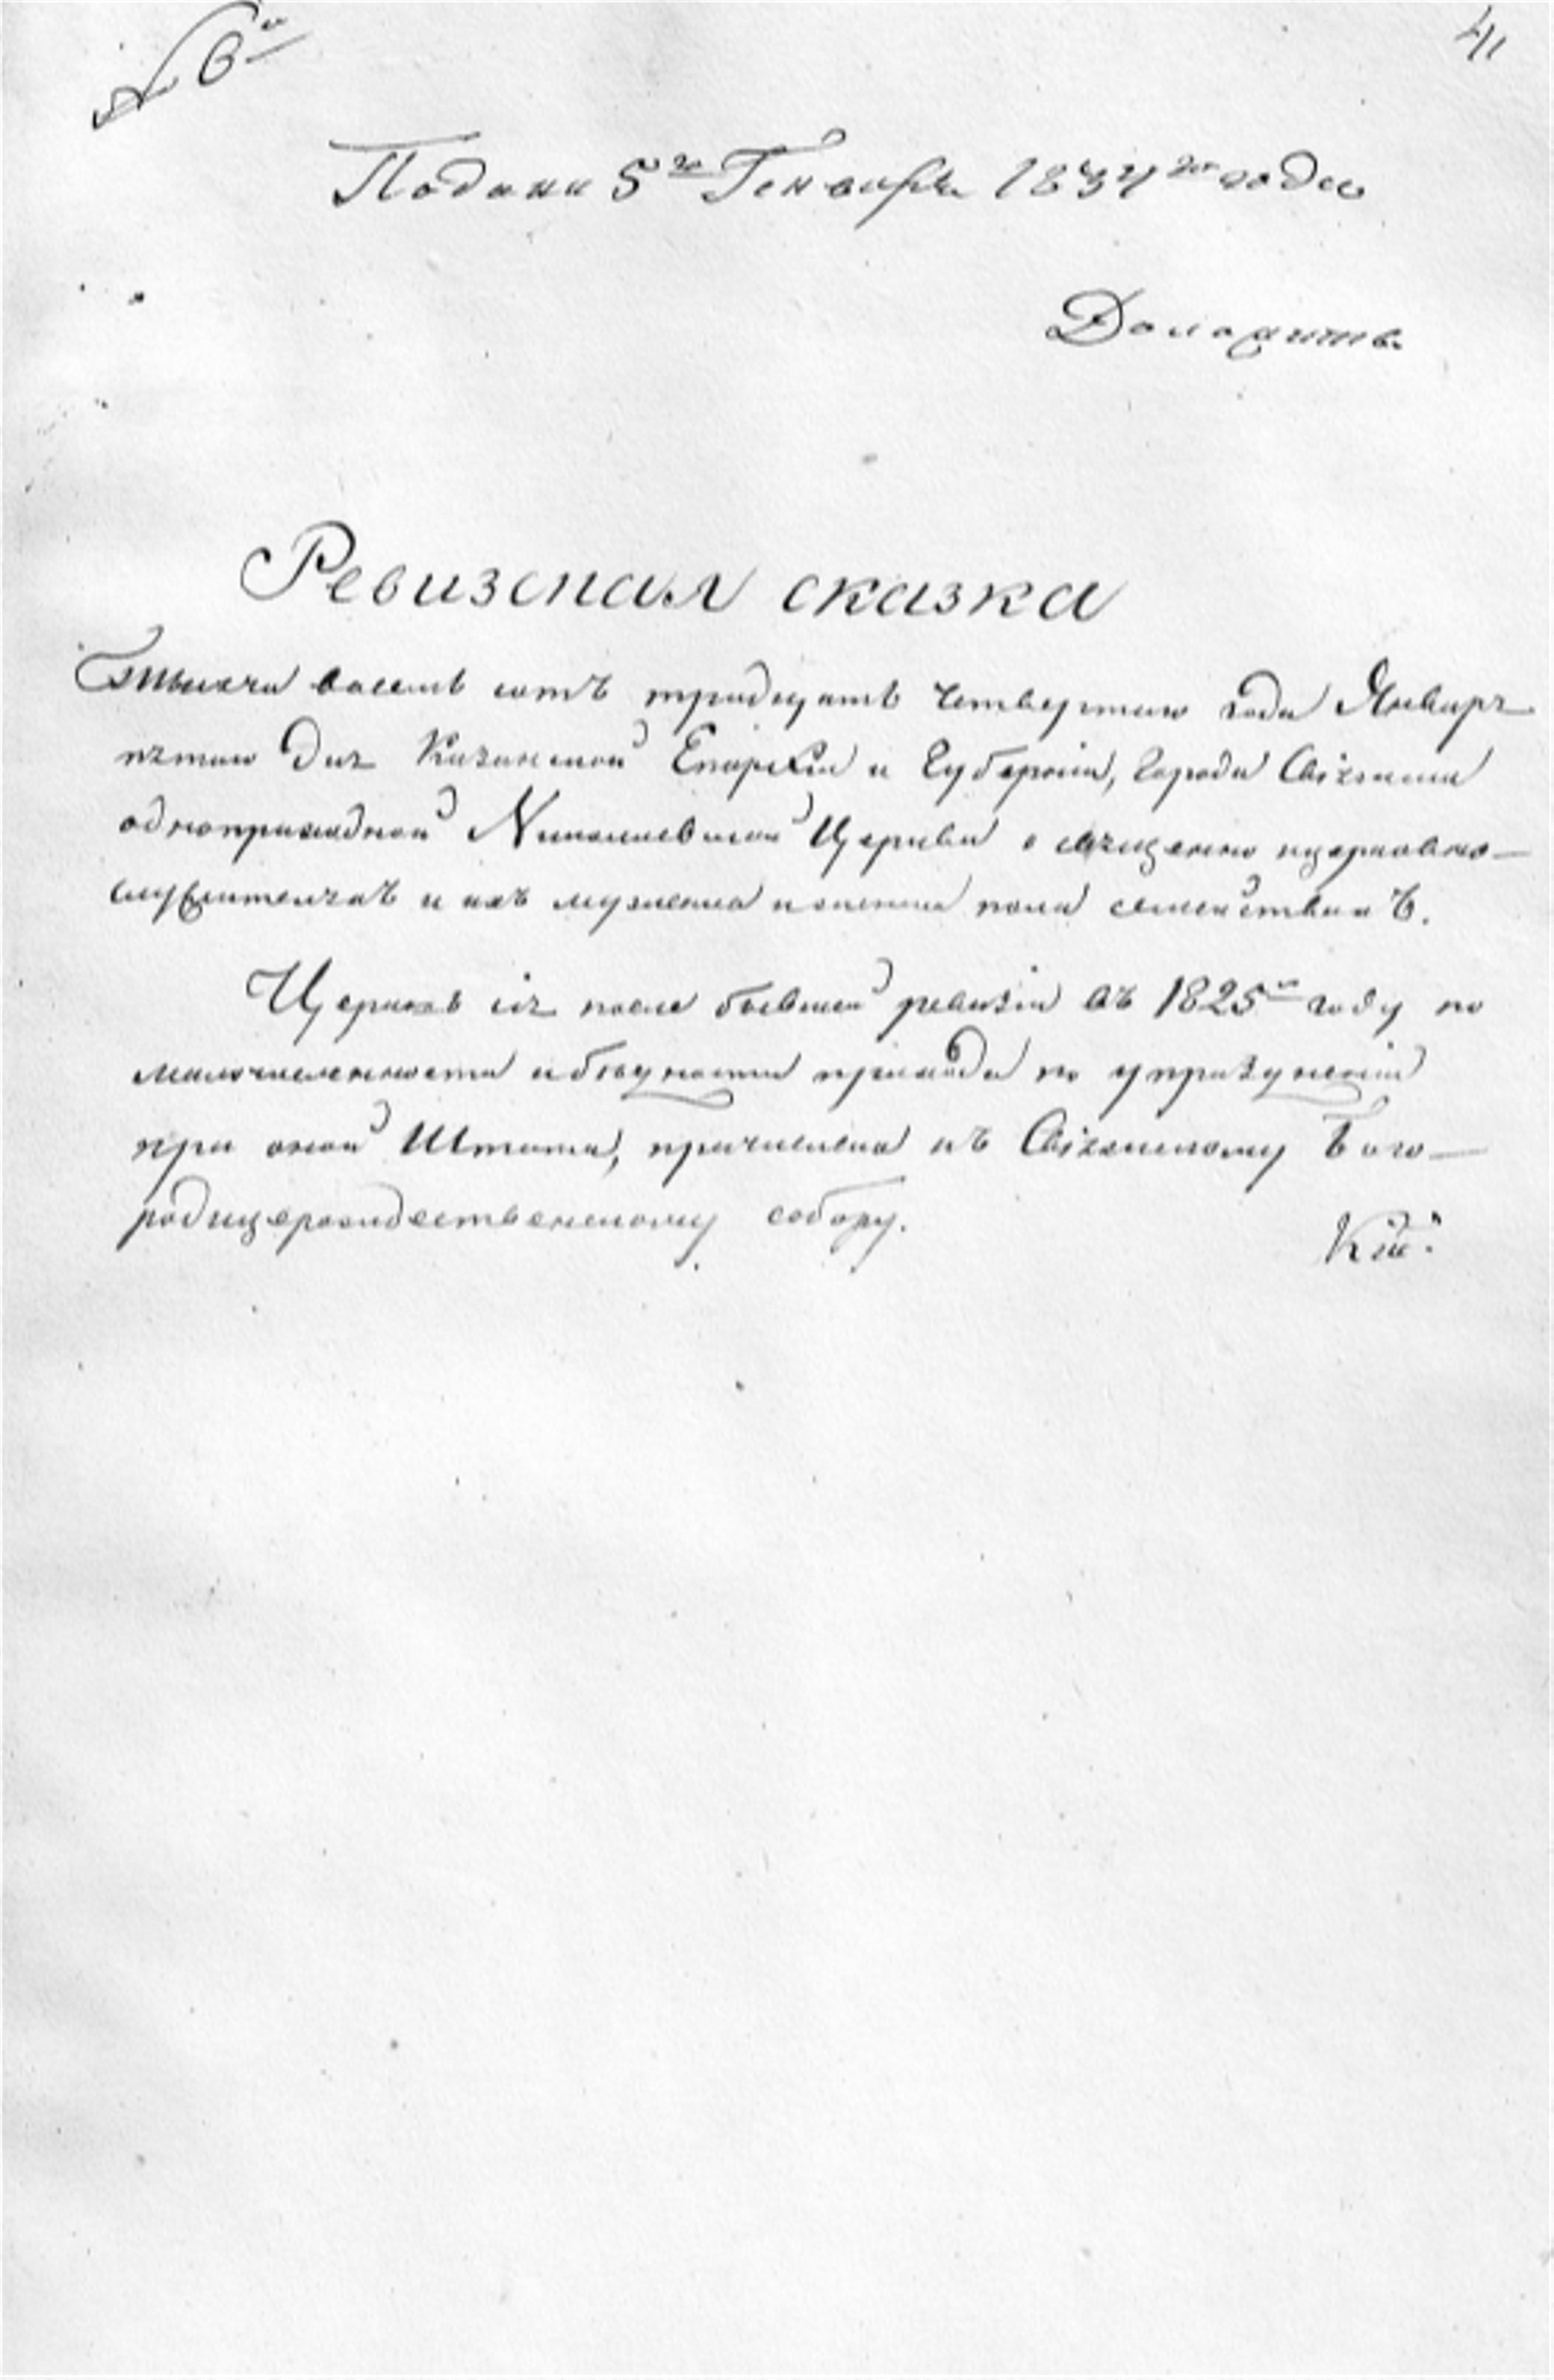 № 6й
41
Подана 5го Генваря 1834го года
Доложить
Ревизская сказка
Тысяча восемь сотъ тридцать четвертаго года Января
пятаго дня Казанской Епархіи и Губерніи, города Свіяжска
одноприходной Николаевской Церкви о священно ицерковно-
служителяхъ и ихъ мужеска иженска пола семействахъ.
Церковь сія после бывшей ревизіи въ 1825м году по
малочисленности ибѣдности прихода по упраздненіи
при оной Штата, причислена къ Свіяжскому Бого-
родицерождественскому собору.